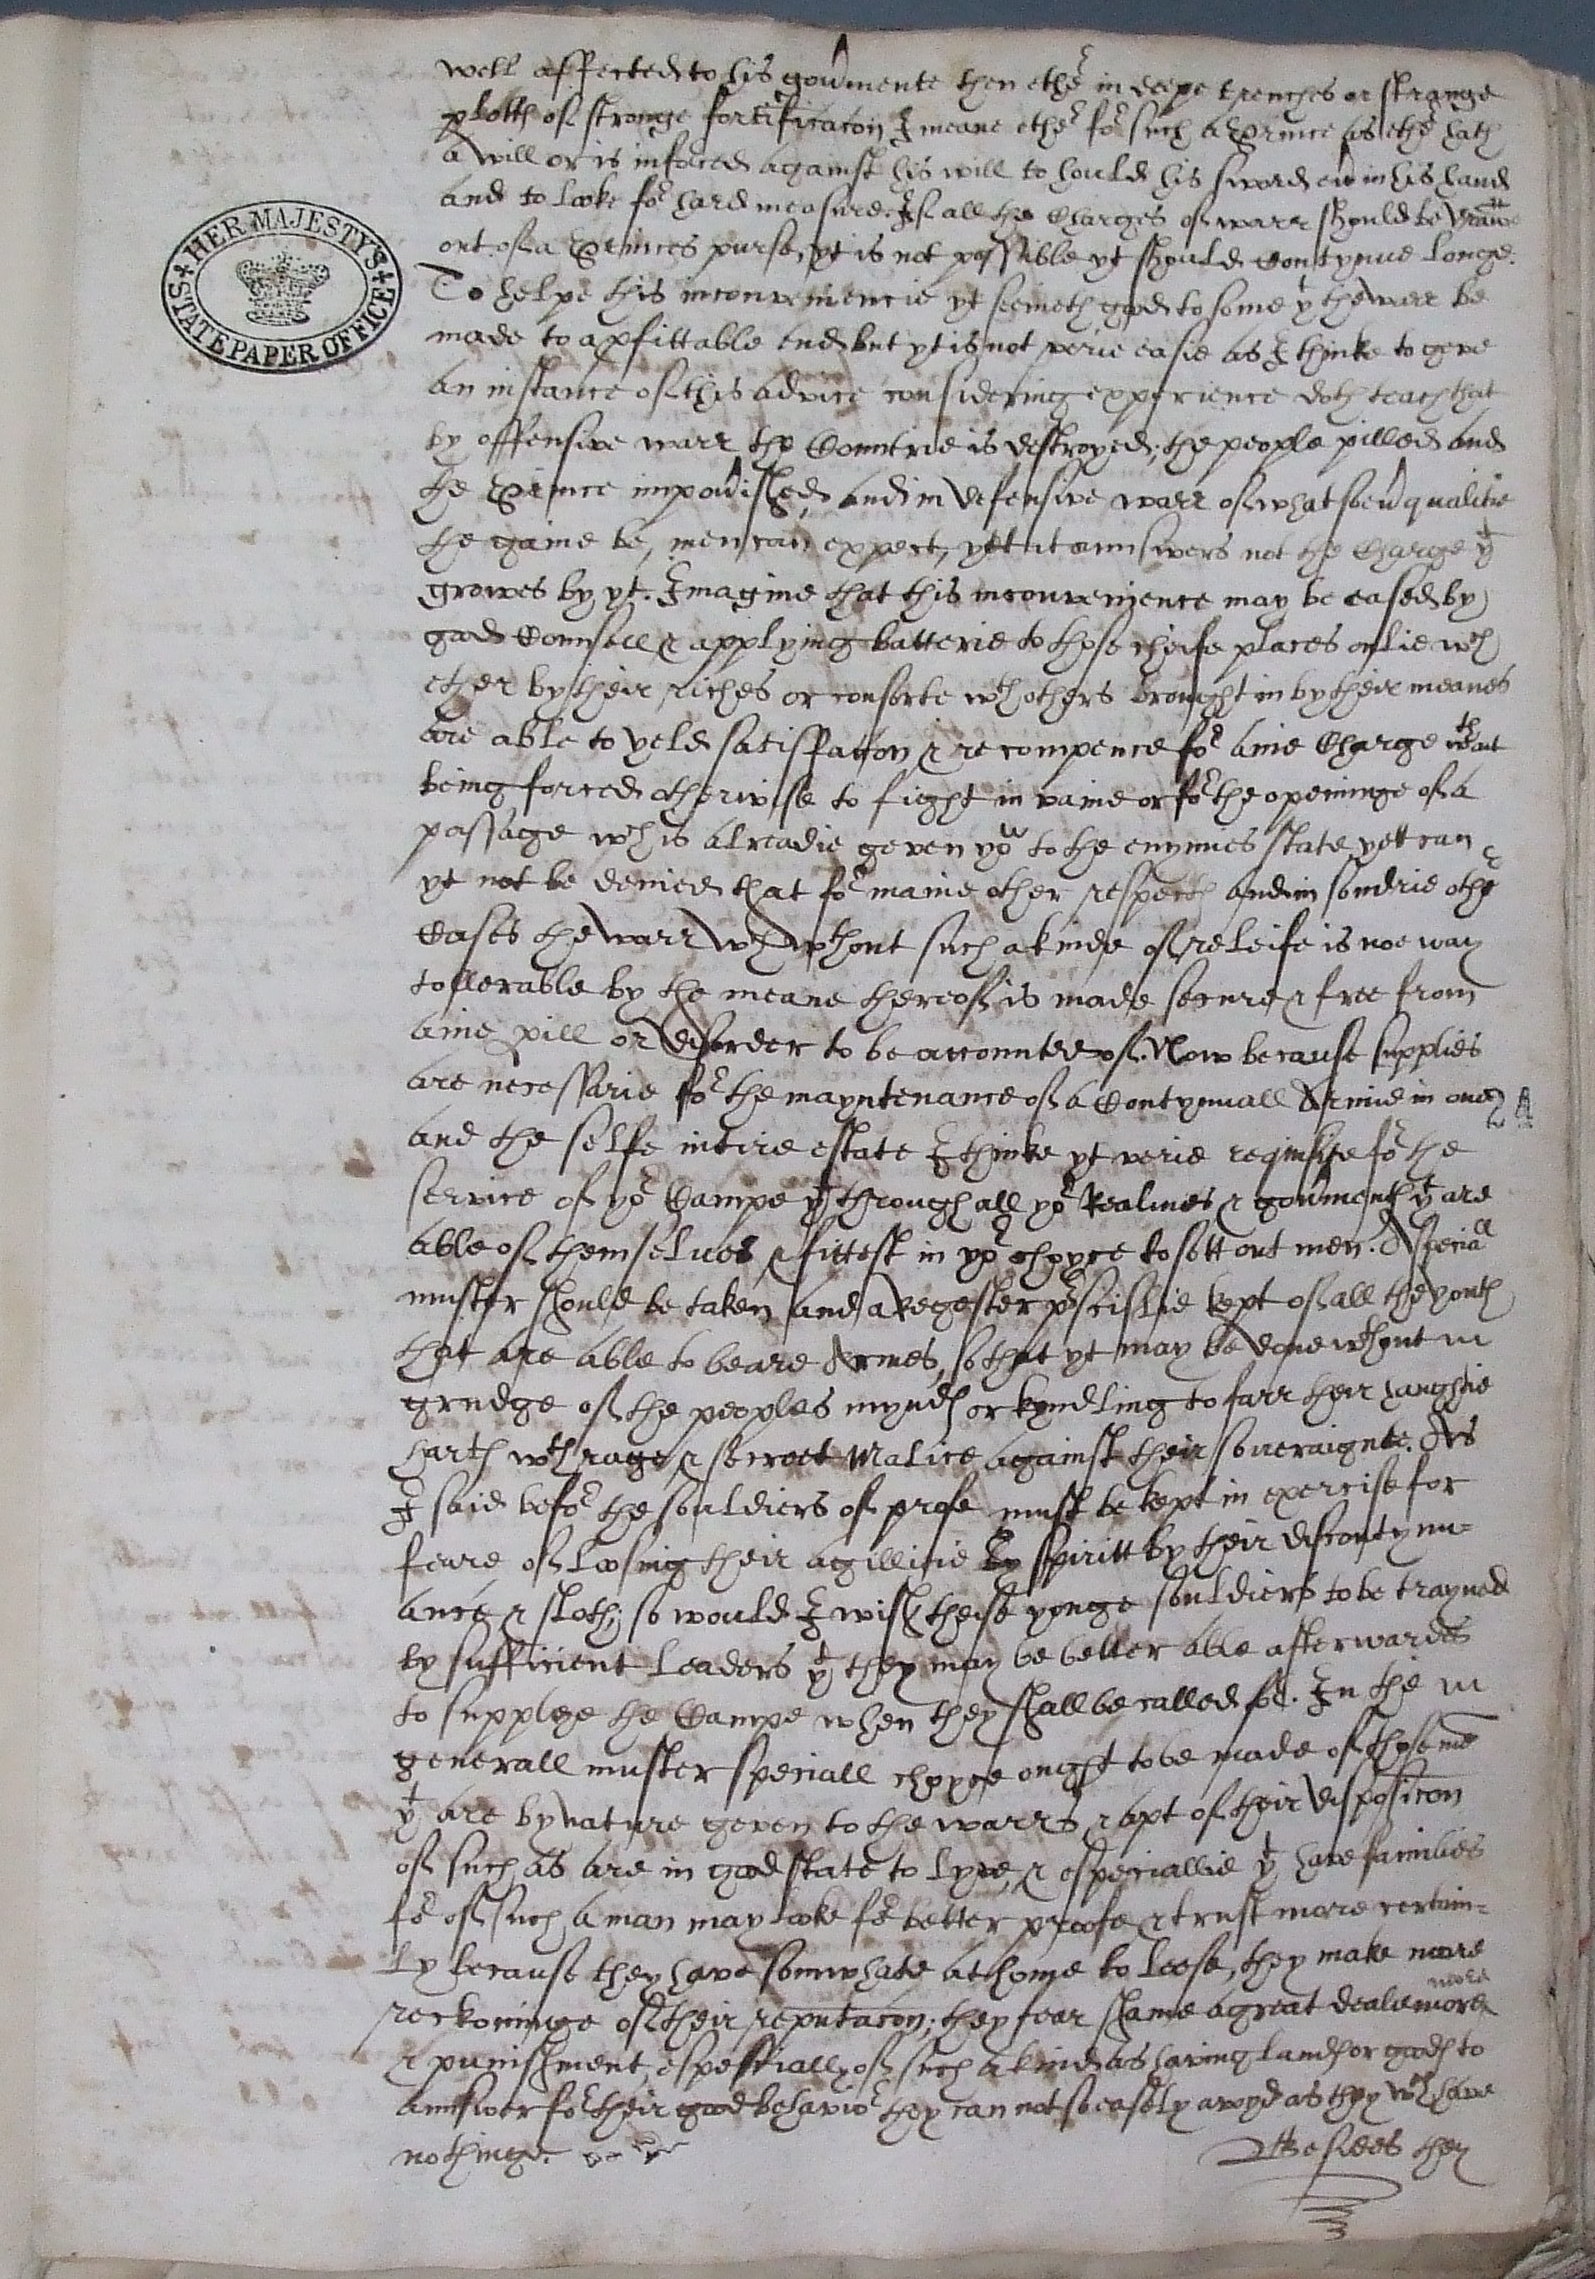 well affected to his gou'mente then ether in deepe trenches or strange
plotts of stronge fortificacon I meane ether for such a Prince as ether hath
a will or is inforced against his will to hould his sword eu' in his hand
and to looke for hard measure. If all the Charges of warr should be drawne
out of a Princes purse, yt is not possible yt should Contynue longe.
To helpe this inconveniencie yt seemeth good to some yt the warr be
made to a pfittable end but yt is not verie easie as I thinke to geve
an instance of this advice considering experience doth teach that
by offensive warr the Countrie is destroyed, the people pilled and
the Prince impou'ished, and in defensive warr of what soeu' qualitie
the gaine be, men can expect, yet it aunswers not the Charge yt
growes by yt. Imagine that this inconvenience may be eased by
good Counsell & applying batterie to those cheife places onlie wch
ether by their riches or consorte wth others brought in by their meanes
are able to yeld satisffacon & recompence for anie Charge wthout
being forced otherwise to fight in vaine or for the openinge of a
passage wch is alreadie geven you to the enymies state yett can
yt not be denied that for manie other respects and in sondrie other
Cases the warr wch wthout such a kinde of releife is noe way
tollerable by the meane thereof is made secure & free from
anie pill or disorder to be accounted of. Now because supplies
are necessarie for the mayntenance of a Contynuall Armie in one
and the selfe intire estate I thinke yt verie requisite for the
service of yor Campe yt through all yor Realmes & gou'ments yt are
able of themselues & fittest in yor choyce to sett out men. A speciall
muster should be taken and a Regester prscislie kept of all the youth
that are able to beare Armes, so that yt may be done wthout
grudge of the peoples mynds or kyndling to farr their haughtie
harts wth rage & secreet Malice against their soueraignte. As
I said before the souldiers of profe must be kept in exercise for
feare of loosing their agillitie & spiritt by their discontynu=
ance & sloth, so would I wish theise yonge souldiers to be trayned
by sufficient leaders yt they may be better able afterwardes
to supplye the Campe when they shall be called for. In the
generall muster speciall choyce ought to be made of those men
yt are by nature geven to the warrs & apt of their disposicon
of such as are in good state to lyve, & especiallie yt have families
for of such a man may looke for better proofe & trust more certain=
ly because they have somwhate at home to loose, they make more
reckoninge of their reputacon; they fear shame a great deale more
& punishment, espesially of such a kind as having lands or goods to
aunswer for their good behavior they can not so easely avoyd as they wch have
nothinge.
Besides they
HER MAJESTY'S
STATE PAPER OFFICE